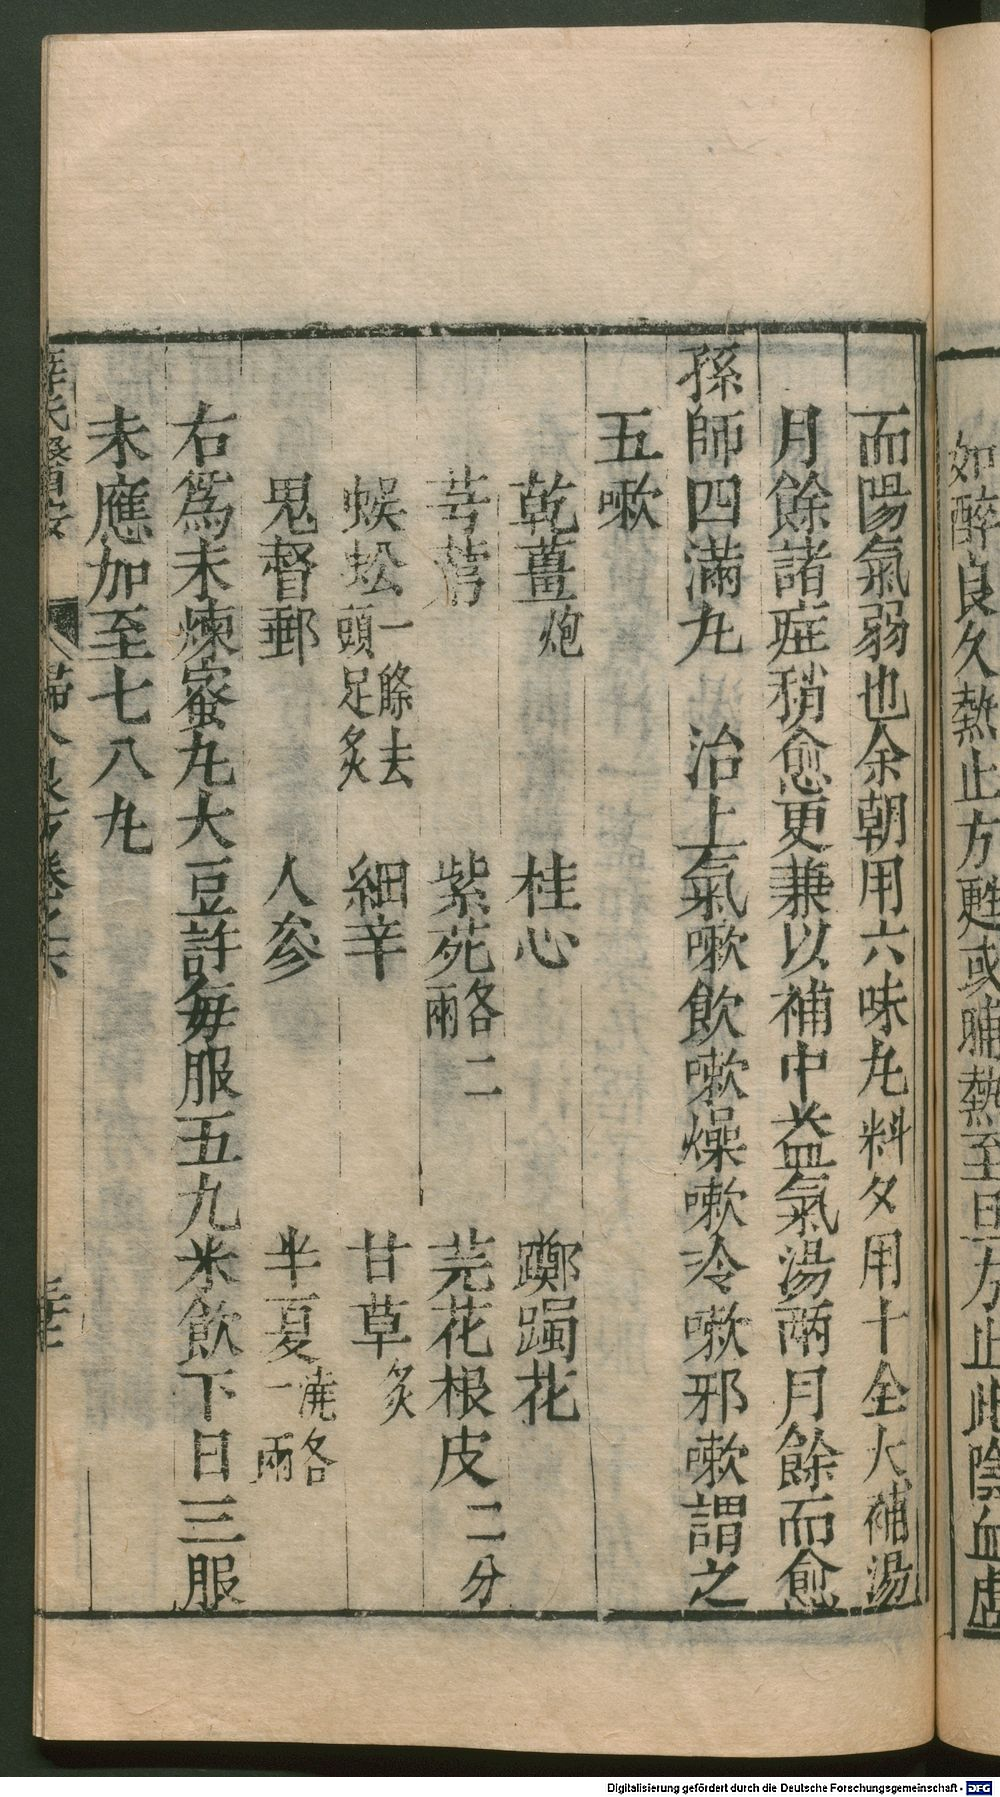 如醉良久熱止方甦或晡熱至旦方止此陰血虛
而陽氣弱也余朝用六味丸料夕用十全大補湯
月餘諸症稍愈更兼以補中益氣湯兩月餘而愈
孫師四滿丸 治上氣嗽飲嗽燥嗽冷嗽邪嗽謂之
五嗽
乾薑炮 桂心 躑躅花
芎藭 紫苑各二兩 芫花根皮二分
蜈蚣一條去頭足炙 細辛 甘草炙
鬼督郵 人參 半夏洗各一兩
右為末煉蜜丸大豆許每服五九米飲下日三服
未應加至七八丸
薛氏醫案 婦人良方卷之六
Digitalisierung gefördert durch die Deutsche Forschungsgemeinschaft - DFG